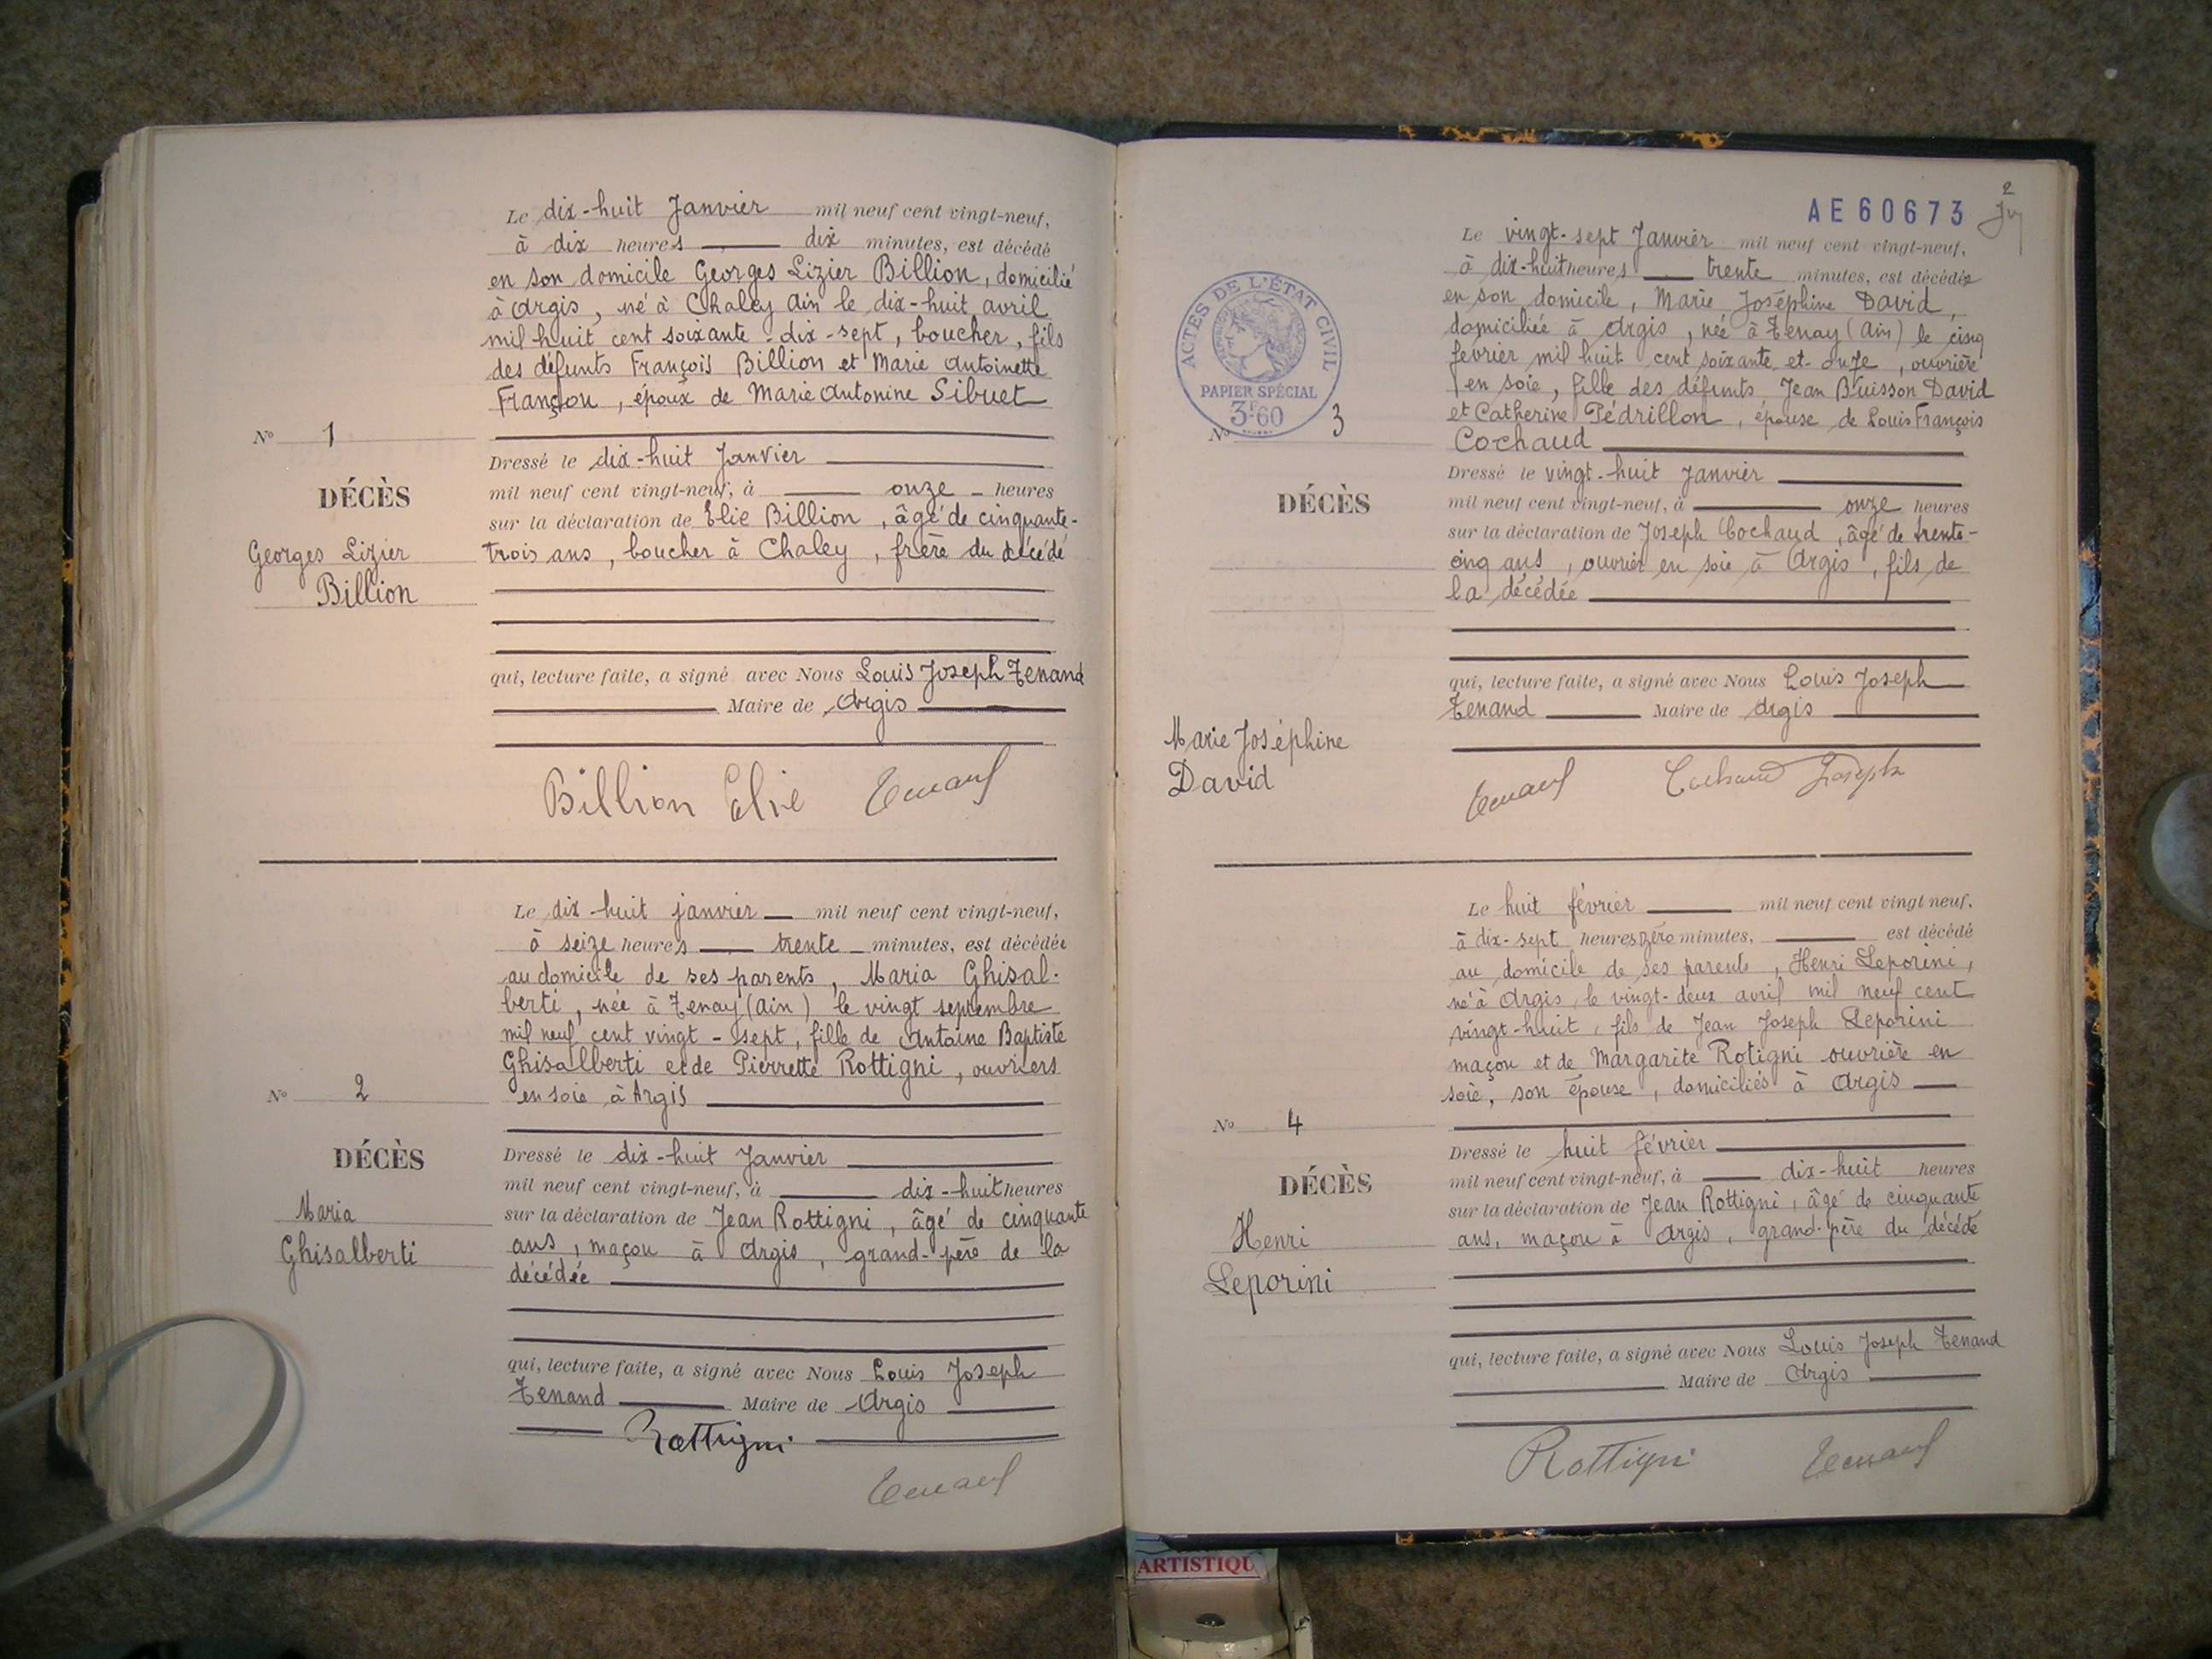 Le dix-huit Janvier mil neuf cent vingt-neuf,
à dix heures dix minutes, est décédé
en son domicile Georges Lizier Billion, domicilié
à Argis, né à Chaley Ain le dix-huit avril
mil huit cent soixante-dix-sept, boucher, fils
des défunts François Billion et Marie Antoinette
Françon, époux de Marie Antonine Sibuet
No 1
Dressé le dix-huit Janvier
mil neuf cent vingt-neuf, à onze heures
DÉCÈS
sur la déclaration de Elie Billion, âgé de cinquante-
Georges Lizier
trois ans, boucher à Chaley, frère du décédé
Billion
qui, lecture faite, a signé avec Nous Louis Joseph Tenand
Maire de Argis
Billion Elie Tenand
Le dix-huit janvier mil neuf cent vingt-neuf,
à seize heures trente minutes, est décédée
au domicile de ses parents, Maria Ghisal-
berti, née à Tenay (Ain) le vingt septembre
mil neuf cent vingt-sept, fille de Antoine Baptiste
Ghisalberti et de Pierrette Rottigni, ouvriers
No 2
en soie à Argis
DÉCÈS
Dressé le dix-huit Janvier
mil neuf cent vingt-neuf, à dix-huit heures
Maria
sur la déclaration de Jean Rottigni, âgé de cinquante
Ghisalberti
ans, maçon à Argis, grand-père de la
décédée
qui, lecture faite, a signé avec Nous Louis Joseph
Tenand Maire de Argis
Rottigni
Tenand
2
AE60673
Le vingt-sept Janvier mil neuf cent vingt-neuf,
à dix-huit heures trente minutes, est décédée
en son domicile, Marie Joséphine David,
domiciliée à Argis, née à Tenay (Ain) le cinq
février mil huit cent soixante-et-onze, ouvrière
en soie, fille des défunts Jean Buisson David
et Catherine Pédrillon, épouse de Louis François
Cochaud
ACTES DE L'ÉTAT CIVIL
PAPIER SPÉCIAL
3F60
No 3
Dressé le vingt-huit Janvier
DÉCÈS
mil neuf cent vingt-neuf, à onze heures
sur la déclaration de Joseph Cochaud, âgé de trente-
cinq ans, ouvrier en soie à Argis, fils de
la décédée
qui, lecture faite, a signé avec Nous Louis Joseph
Tenand Maire de Argis
Marie Joséphine
David
Tenand Cochaud Joseph
Le huit février mil neuf cent vingt neuf,
à dix-sept heures zéro minutes, est décédé
au domicile de ses parents, Henri Leporini,
né à Argis, le vingt-deux avril mil neuf cent
vingt-huit, fils de Jean Joseph Leporini
maçon et de Margarite Rotigni ouvrière en
soie, son épouse, domiciliés à Argis
No 4
Dressé le huit février
DÉCÈS
mil neuf cent vingt-neuf, à dix-huit heures
sur la déclaration de Jean Rottigni, âgé de cinquante
Henri
ans, maçon à Argis, grand-père du décédé
Leporini
qui, lecture faite, a signé avec Nous Louis Joseph Tenand
Maire de Argis
Rottigni Tenand
ARTISTIQU